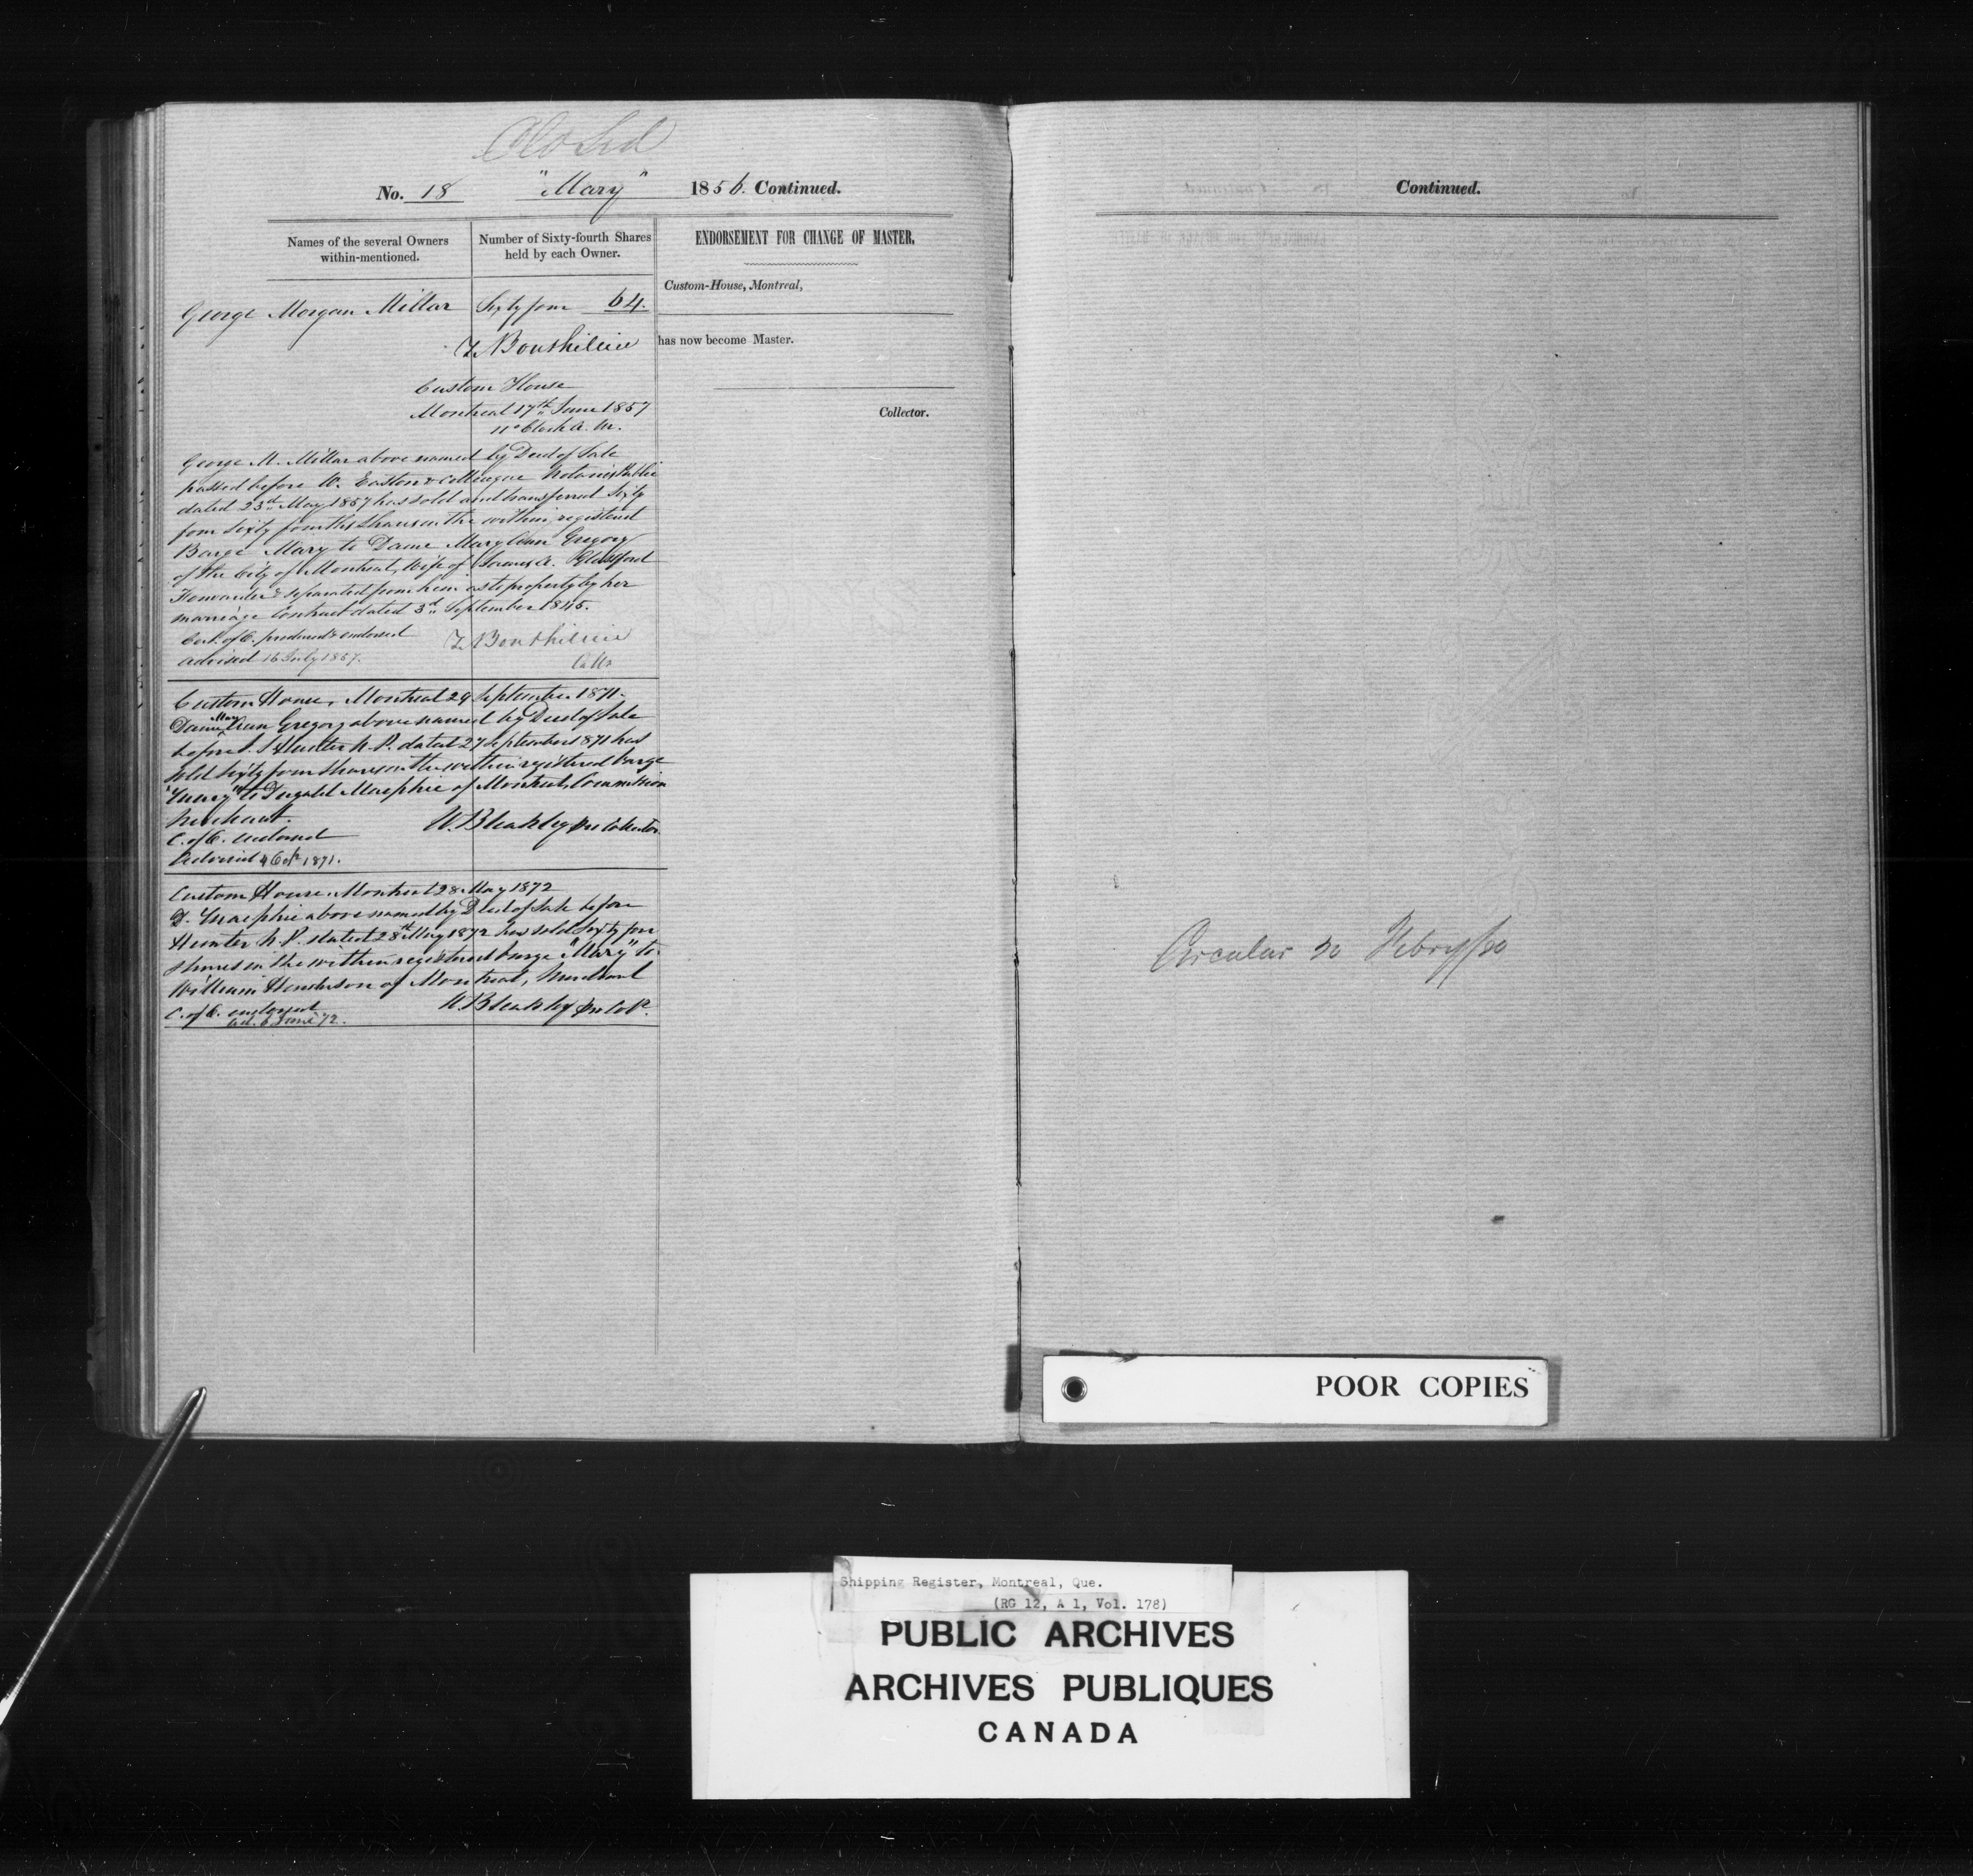 Closed
No. 18 "Mary" 1856. Continued.
Names of the several Owners within-mentioned.
Number of Sixty-fourth Shares held by each Owner.
ENDORSEMENT FOR CHANGE OF MASTER.
George Morgan Millar Sixty four 64.
Custom-House, Montreal,
has now become Master.
Collector.
T Bouthillier
Custom House
Montreal 17th June 1857
11 o'Clock A. M.
George M. Millar above named by Deed of Sale
passed before W. Easton & colleague Notaries Public
dated 23d May 1857 has sold and transferred Sixty
four Sixty fourths Shares in the within registered
Barge Mary to Dame Mary Ann Gregory
of the City of Montreal, Wife of James A. Glassford
Forwarder & separated from him as to property by her
marriage Contract dated 3d September 1845.
Cert. of O. produced & endorsed
advised 16 July 1857.
T Bouthillier
Collr
Custom House, Montreal 29 September 1871.
Dame Mary Ann Gregory above named by Deed of Sale
before J. S Hunter N. P. dated 27 September 1871 has
sold sixty four shares in the within registered barge
"Mary" to Dugald Macphie of Montreal, Commission
Merchant.
C. of O. endorsed
W. Bleakley pro Collector
Advised 4 Oct 1871.
Custom House, Montreal 28 May 1872
D. Macphie above named by Deed of Sale before
Hunter N. P. dated 28th May 1872 has sold sixty four
shares in the within registered barge "Mary" to
William Henderson of Montreal, Merchant
C. of O. endorsed
W. Bleakley pro Collr.
Ad. 6 June 72.
Continued.
Circular 20 Febry/80
POOR COPIES
Shipping Register, Montreal, Que.
(RG 12, A 1, Vol. 178)
PUBLIC ARCHIVES
ARCHIVES PUBLIQUES
CANADA